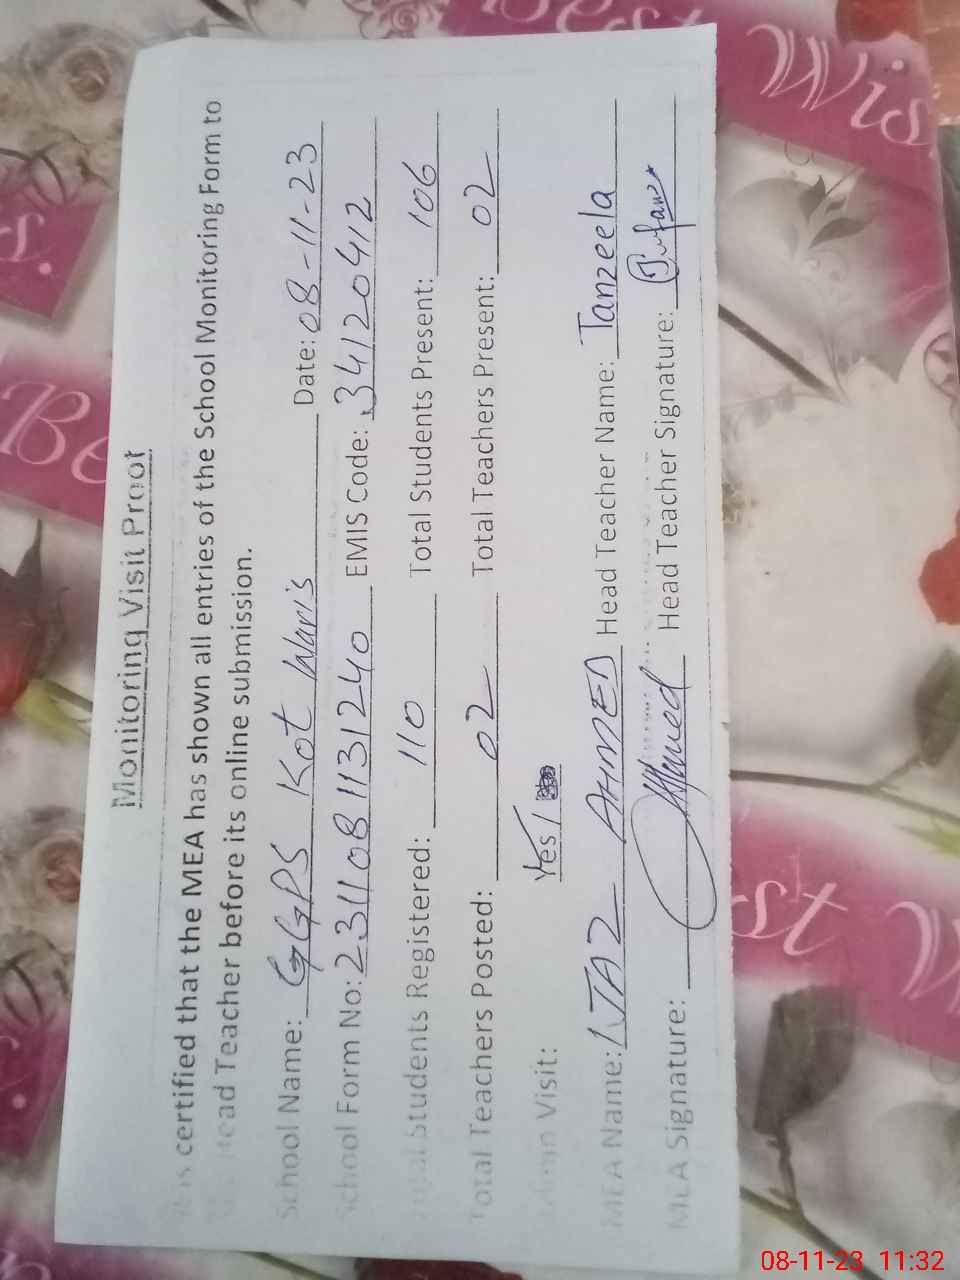 Monitoring Visit Proof
is certified that the MEA has shown all entries of the School Monitoring Form to
Head Teacher before its online submission.
School Name: GGPS Kot Waris Date: 08-11-23
School Form No: 2311081131240 EMIS Code: 34120412
Total Students Registered: 110 Total Students Present: 106
Total Teachers Posted: 02 Total Teachers Present: 02
Visit: Yes/
MEA Name: IJAZ AHMED Head Teacher Name: Tanzeela
MEA Signature: Ahmed Head Teacher Signature:
Best Wis
Be
st W
s.
08-11-23 11:32